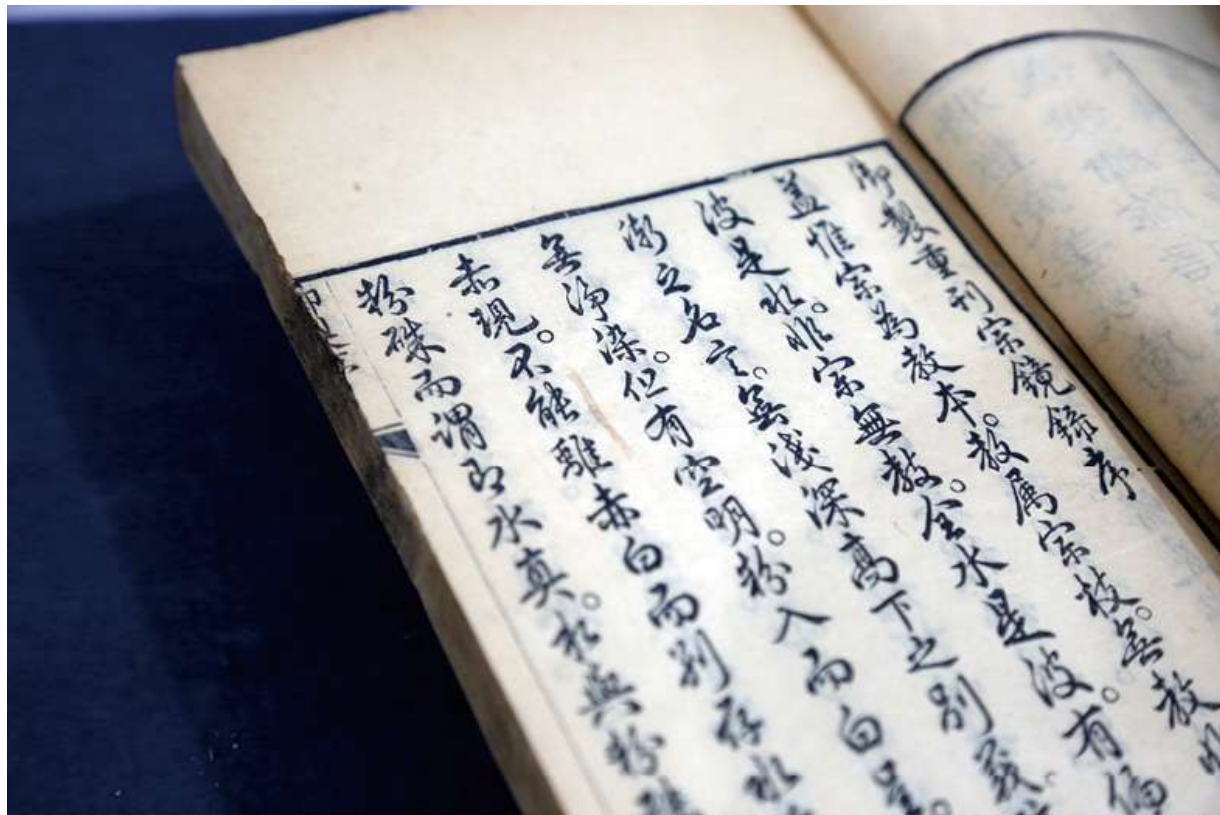 御製重刊宗鏡錄序
蓋惟宗為教本。教属宗枝。無教非
波是水。非宗無教。全水是波。有偏
漸之名言。無淺深高下之別義
無淨染。但有空明。粉入而白呈。
赤現。不能離赤白而別存水
粉硃而謂即水真。水與粉